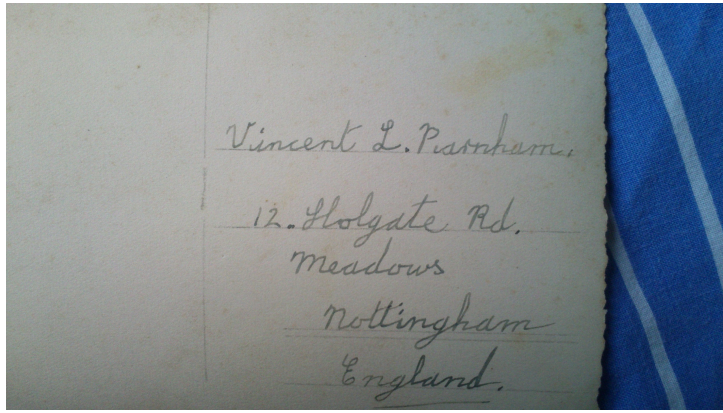 Vincent L. Parnham.
12. Holgate Rd.
Meadows
Nottingham
England.